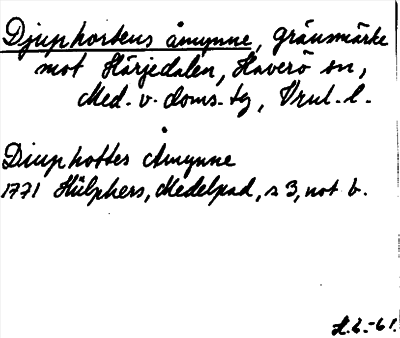 Djuphortens åmynne, gränsmärke
mot Härjedalen, Haverö sn,
Med. v. doms. tg, Vrnl. l.
Diuphottes Åmynne
1771 Hülphers, Medelpad, s 3, not b.